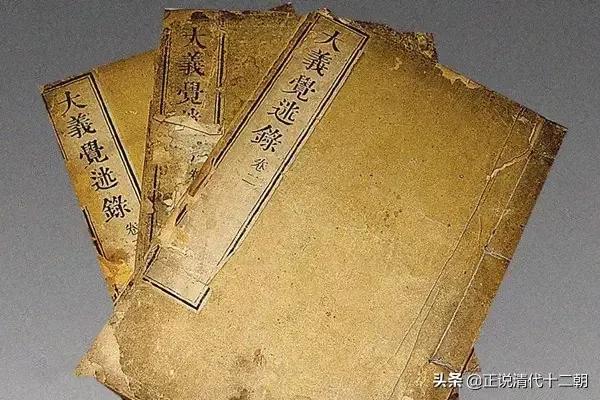 大義覺迷錄 卷
大義覺迷
大義覺迷錄 卷二
头条 @正说清代十二朝